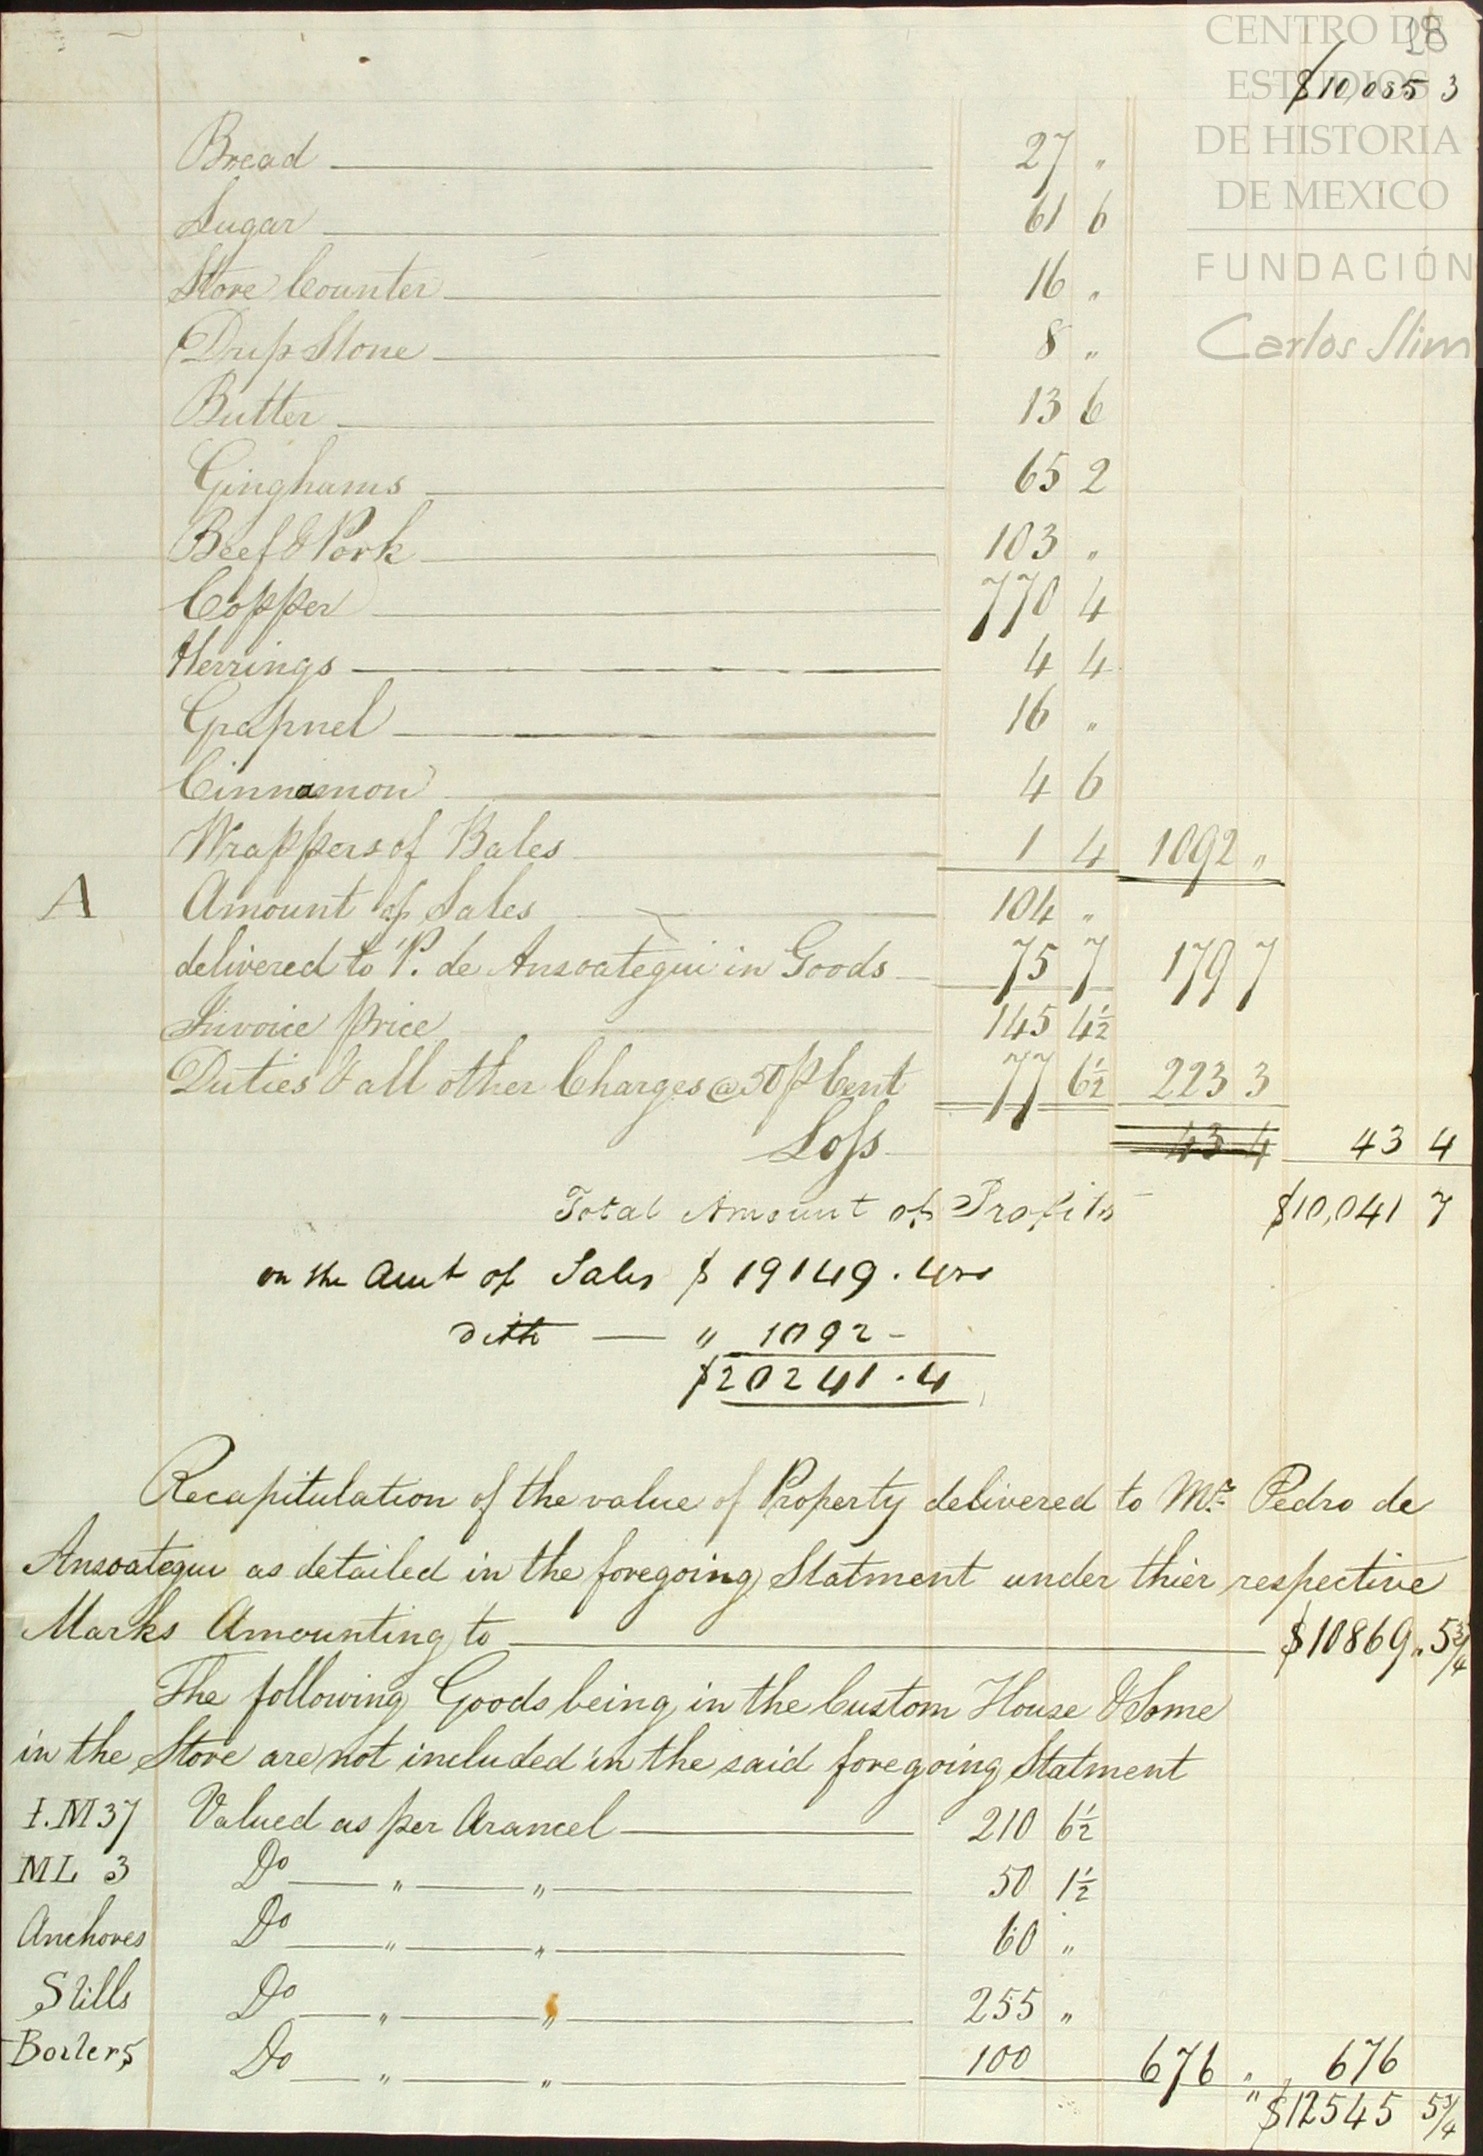 28
CENTRO DE
ESTUDIOS
DE HISTORIA
DE MEXICO
FUNDACIÓN
Carlos Slim
$10,085 3
Bread 27 "
Sugar 61 6
Store Counter 16 "
Drip Stone 8 "
Butter 13 6
Ginghams 65 2
Beef & Pork 103 "
Copper 770 4
Herrings 4 4
Grapnel 16 "
Cinnamon 4 6
Wrappers of Bales 1 4 1092 "
A Amount of Sales 104 "
delivered to P. de Ansoategui in Goods 75 7 179 7
Invoice price 145 4½
Duties & all other Charges @ 50 p Cent 77 6½ 223 3
Loss 43 4 43 4
Total Amount of Profits $10,041 7
on the Amt of Sales $ 19149 . 4rs
ditto " 1092 -
$20241 . 4
Recapitulation of the value of Property delivered to Mr. Pedro de
Ansoategui as detailed in the foregoing Statment under thier respective
Marks Amounting to $10869 " 5¾
The following Goods being in the Custom House & Some
in the Store are not included in the said foregoing Statment
I.M 37 Valued as per Arancel 210 6½
ML 3 Do " " 50 1½
Anchores Do " " 60 "
Stills Do " " 255 "
Boilers Do " " 100 676 " 676
" $12545 5¾